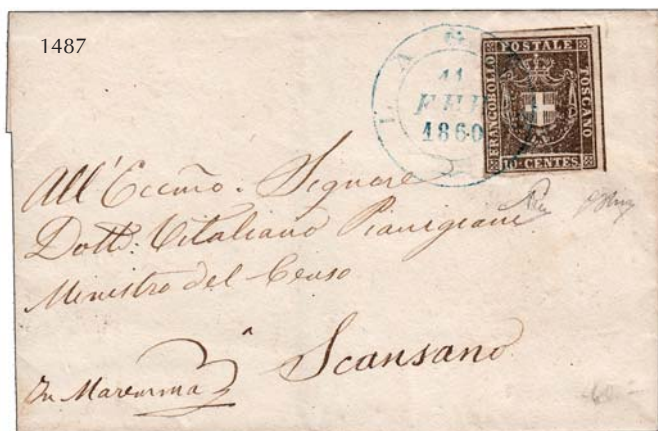 1487
L A
11
FEB
1860
FRANCOBOLLO
POSTALE
TOSCANO
10 CENTES
All'Eccmo. Signore
Dott. Vitaliano Pianigiani
Ministro del Censo
a Scansano
In Maremma